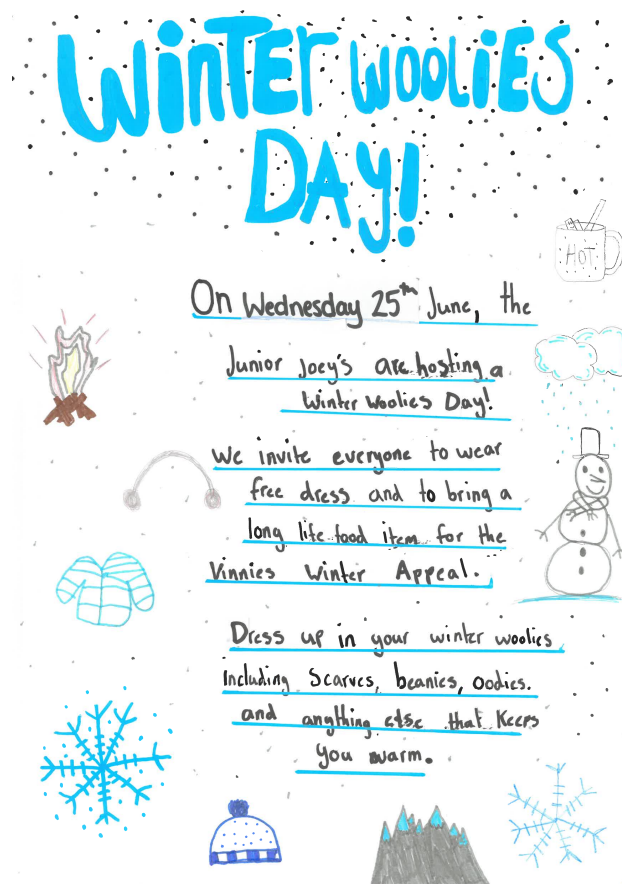 WiNTER WOOLiES
DAY!
HOT
On Wednesday 25th June, the
Junior Joey's are hosting a
Winter Woolies Day!
We invite everyone to wear
free dress and to bring a
long life food item for the
Vinnies Winter Appeal.
Dress up in your winter woolies
including Scarves, beanies, oodies.
and anything else that keeps
you warm.